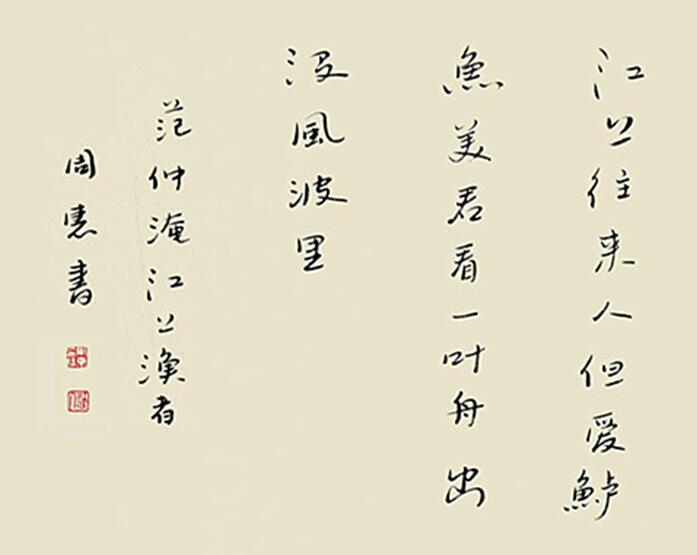 江上往来人但爱鲈
魚美君看一叶舟出
没風波里
范仲淹江上渔者
周憲書